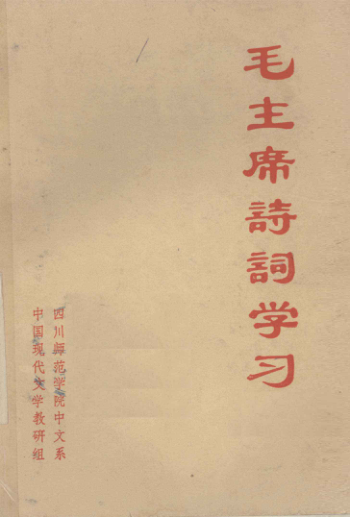 毛主席詩詞学习
四川师范学院中文系
中国现代文学教研组